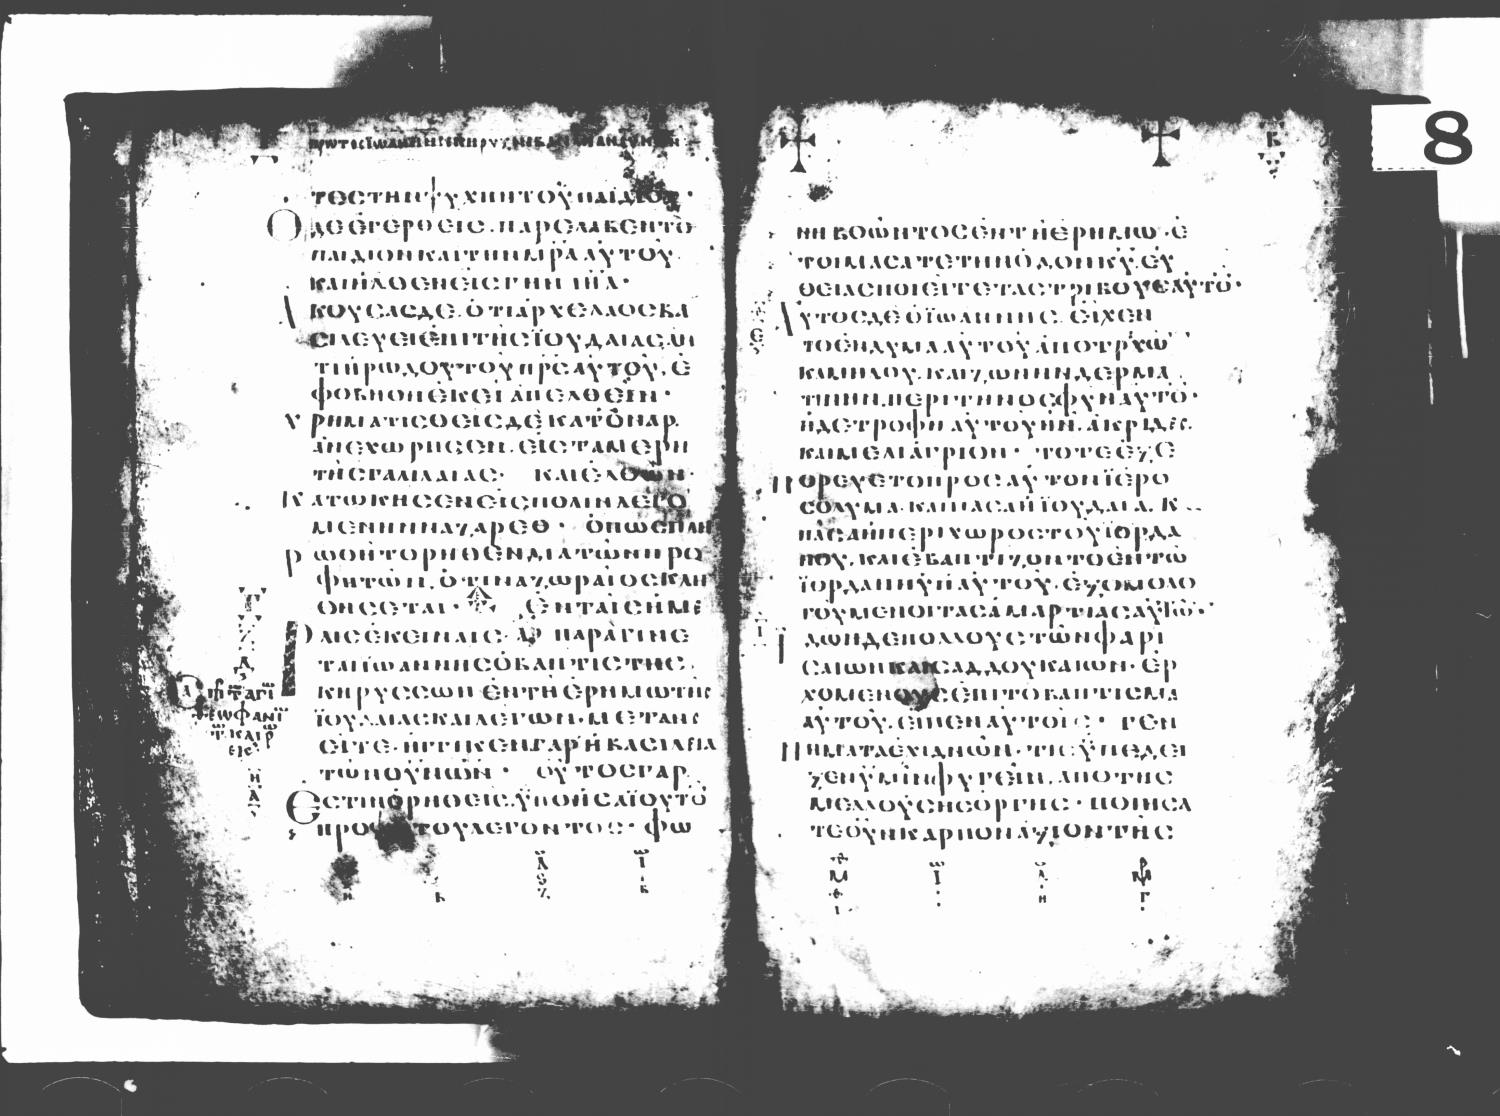 ΤΕΣΤΗΝΨΥΧΗΝΤΟΥΠΑΙΔΙΟΥ·
ΟΔΕΕΓΕΡΘΕΙΣ·ΠΑΡΕΛΑΒΕΝΤΟ
ΠΑΙΔΙΟΝΚΑΙΤΗΝΜΡΑΑΥΤΟΥ
ΚΑΙΗΛΘΕΝΕΙΣΓΗΝΙΗΛ·
ΑΚΟΥΣΑΣΔΕ·ΟΤΙΑΡΧΕΛΑΟΣΒΑ
ΣΙΛΕΥΕΙΕΠΙΤΗΣΪΟΥΔΑΙΑΣΑΝ
ΤΙΗΡΩΔΟΥΤΟΥΠΡΣΑΥΤΟΥ·Ε
ΦΟΒΗΘΗΕΚΕΙΑΠΕΛΘΕΙΝ·
ΧΡΗΜΑΤΙΣΘΕΙΣΔΕΚΑΤΟΝΑΡ
ΑΝΕΧΩΡΗΣΕΝ·ΕΙΣΤΑΜΕΡΗ
ΤΗΣΓΑΛΙΛΑΙΑΣ· ΚΑΙΕΛΘΩΝ·
ΚΑΤΩΚΗΣΕΝΕΙΣΠΟΛΙΝΛΕΓΟ
ΜΕΝΗΝΝΑΖΑΡΕΘ· ΟΠΩΣΠΛΗ
ΡΩΘΗΤΟΡΗΘΕΝΔΙΑΤΩΝΠΡΟ
ΦΗΤΩΝ·ΟΤΙΝΑΖΩΡΑΙΟΣΚΛΗ
ΘΗΣΕΤΑΙ· ΕΝΤΑΙΣΗΜΕ
ΡΑΙΣΕΚΕΙΝΑΙΣ· ΠΑΡΑΓΙΝΕ
ΤΑΙΪΩΑΝΝΗΣΟΒΑΠΤΙΣΤΗΣ·
ΚΗΡΥΣΣΩΝΕΝΤΗΕΡΗΜΩΤΗΣ
ΪΟΥΔΑΙΑΣΚΑΙΛΕΓΩΝ·ΜΕΤΑΝΟ
ΕΙΤΕ·ΗΓΓΙΚΕΝΓΑΡΗΒΑΣΙΛΕΙΑ
ΤΩΝΟΥΝΩΝ· ΟΥΤΟΣΓΑΡ
ΕΣΤΙΝΟΡΗΘΕΙΣ·ΥΠΟΗΣΑΪΟΥΤΟ
ΠΡΟΦΗΤΟΥΛΕΓΟΝΤΟΣ·ΦΩ
ΝΗΒΟΩΝΤΟΣΕΝΤΗΕΡΗΜΩ·Ε
ΤΟΙΜΑΣΑΤΕΤΗΝΟΔΟΝΚΥ·ΕΥ
ΘΕΙΑΣΠΟΙΕΙΤΕΤΑΣΤΡΙΒΟΥΣΑΥΤΟΥ·
ΑΥΤΟΣΔΕΟΪΩΑΝΝΗΣ·ΕΙΧΕΝ
ΤΟΕΝΔΥΜΑΑΥΤΟΥΑΠΟΤΡΧΩ
ΚΑΜΗΛΟΥ·ΚΑΙΖΩΝΗΝΔΕΡΜΑ
ΤΙΝΗΝ·ΠΕΡΙΤΗΝΟΣΦΥΝΑΥΤΟΥ·
ΗΔΕΤΡΟΦΗΑΥΤΟΥΗΝ·ΑΚΡΙΔΕΣ·
ΚΑΙΜΕΛΙΑΓΡΙΟΝ· ΤΟΤΕΕΞΕ
ΠΟΡΕΥΕΤΟΠΡΟΣΑΥΤΟΝΪΕΡΟ
ΣΟΛΥΜΑ·ΚΑΙΠΑΣΑΗΪΟΥΔΑΙΑ·Κ
ΠΑΣΑΗΠΕΡΙΧΩΡΟΣΤΟΥΪΟΡΔΑ
ΝΟΥ·ΚΑΙΕΒΑΠΤΙΖΟΝΤΟΕΝΤΩ
ΪΟΡΔΑΝΗΫΠΑΥΤΟΥ·ΕΞΟΜΟΛΟ
ΓΟΥΜΕΝΟΙΤΑΣΑΜΑΡΤΙΑΣΑΥΤΩ·
ΪΔΩΝΔΕΠΟΛΛΟΥΣΤΩΝΦΑΡΙ
ΣΑΙΩΝΚΑΙΣΑΔΔΟΥΚΑΙΩΝ·ΕΡ
ΧΟΜΕΝΟΥΣΕΠΙΤΟΒΑΠΤΙΣΜΑ
ΑΥΤΟΥ·ΕΙΠΕΝΑΥΤΟΙΣ· ΓΕΝ
ΝΗΜΑΤΑΕΧΙΔΝΩΝ·ΤΙΣΫΠΕΔΕΙ
ΞΕΝΫΜΙΝΦΥΓΕΙΝ·ΑΠΟΤΗΣ
ΜΕΛΛΟΥΣΗΣΟΡΓΗΣ·ΠΟΙΗΣΑ
ΤΕΟΥΝΚΑΡΠΟΝΑΞΙΟΝΤΗΣ
8